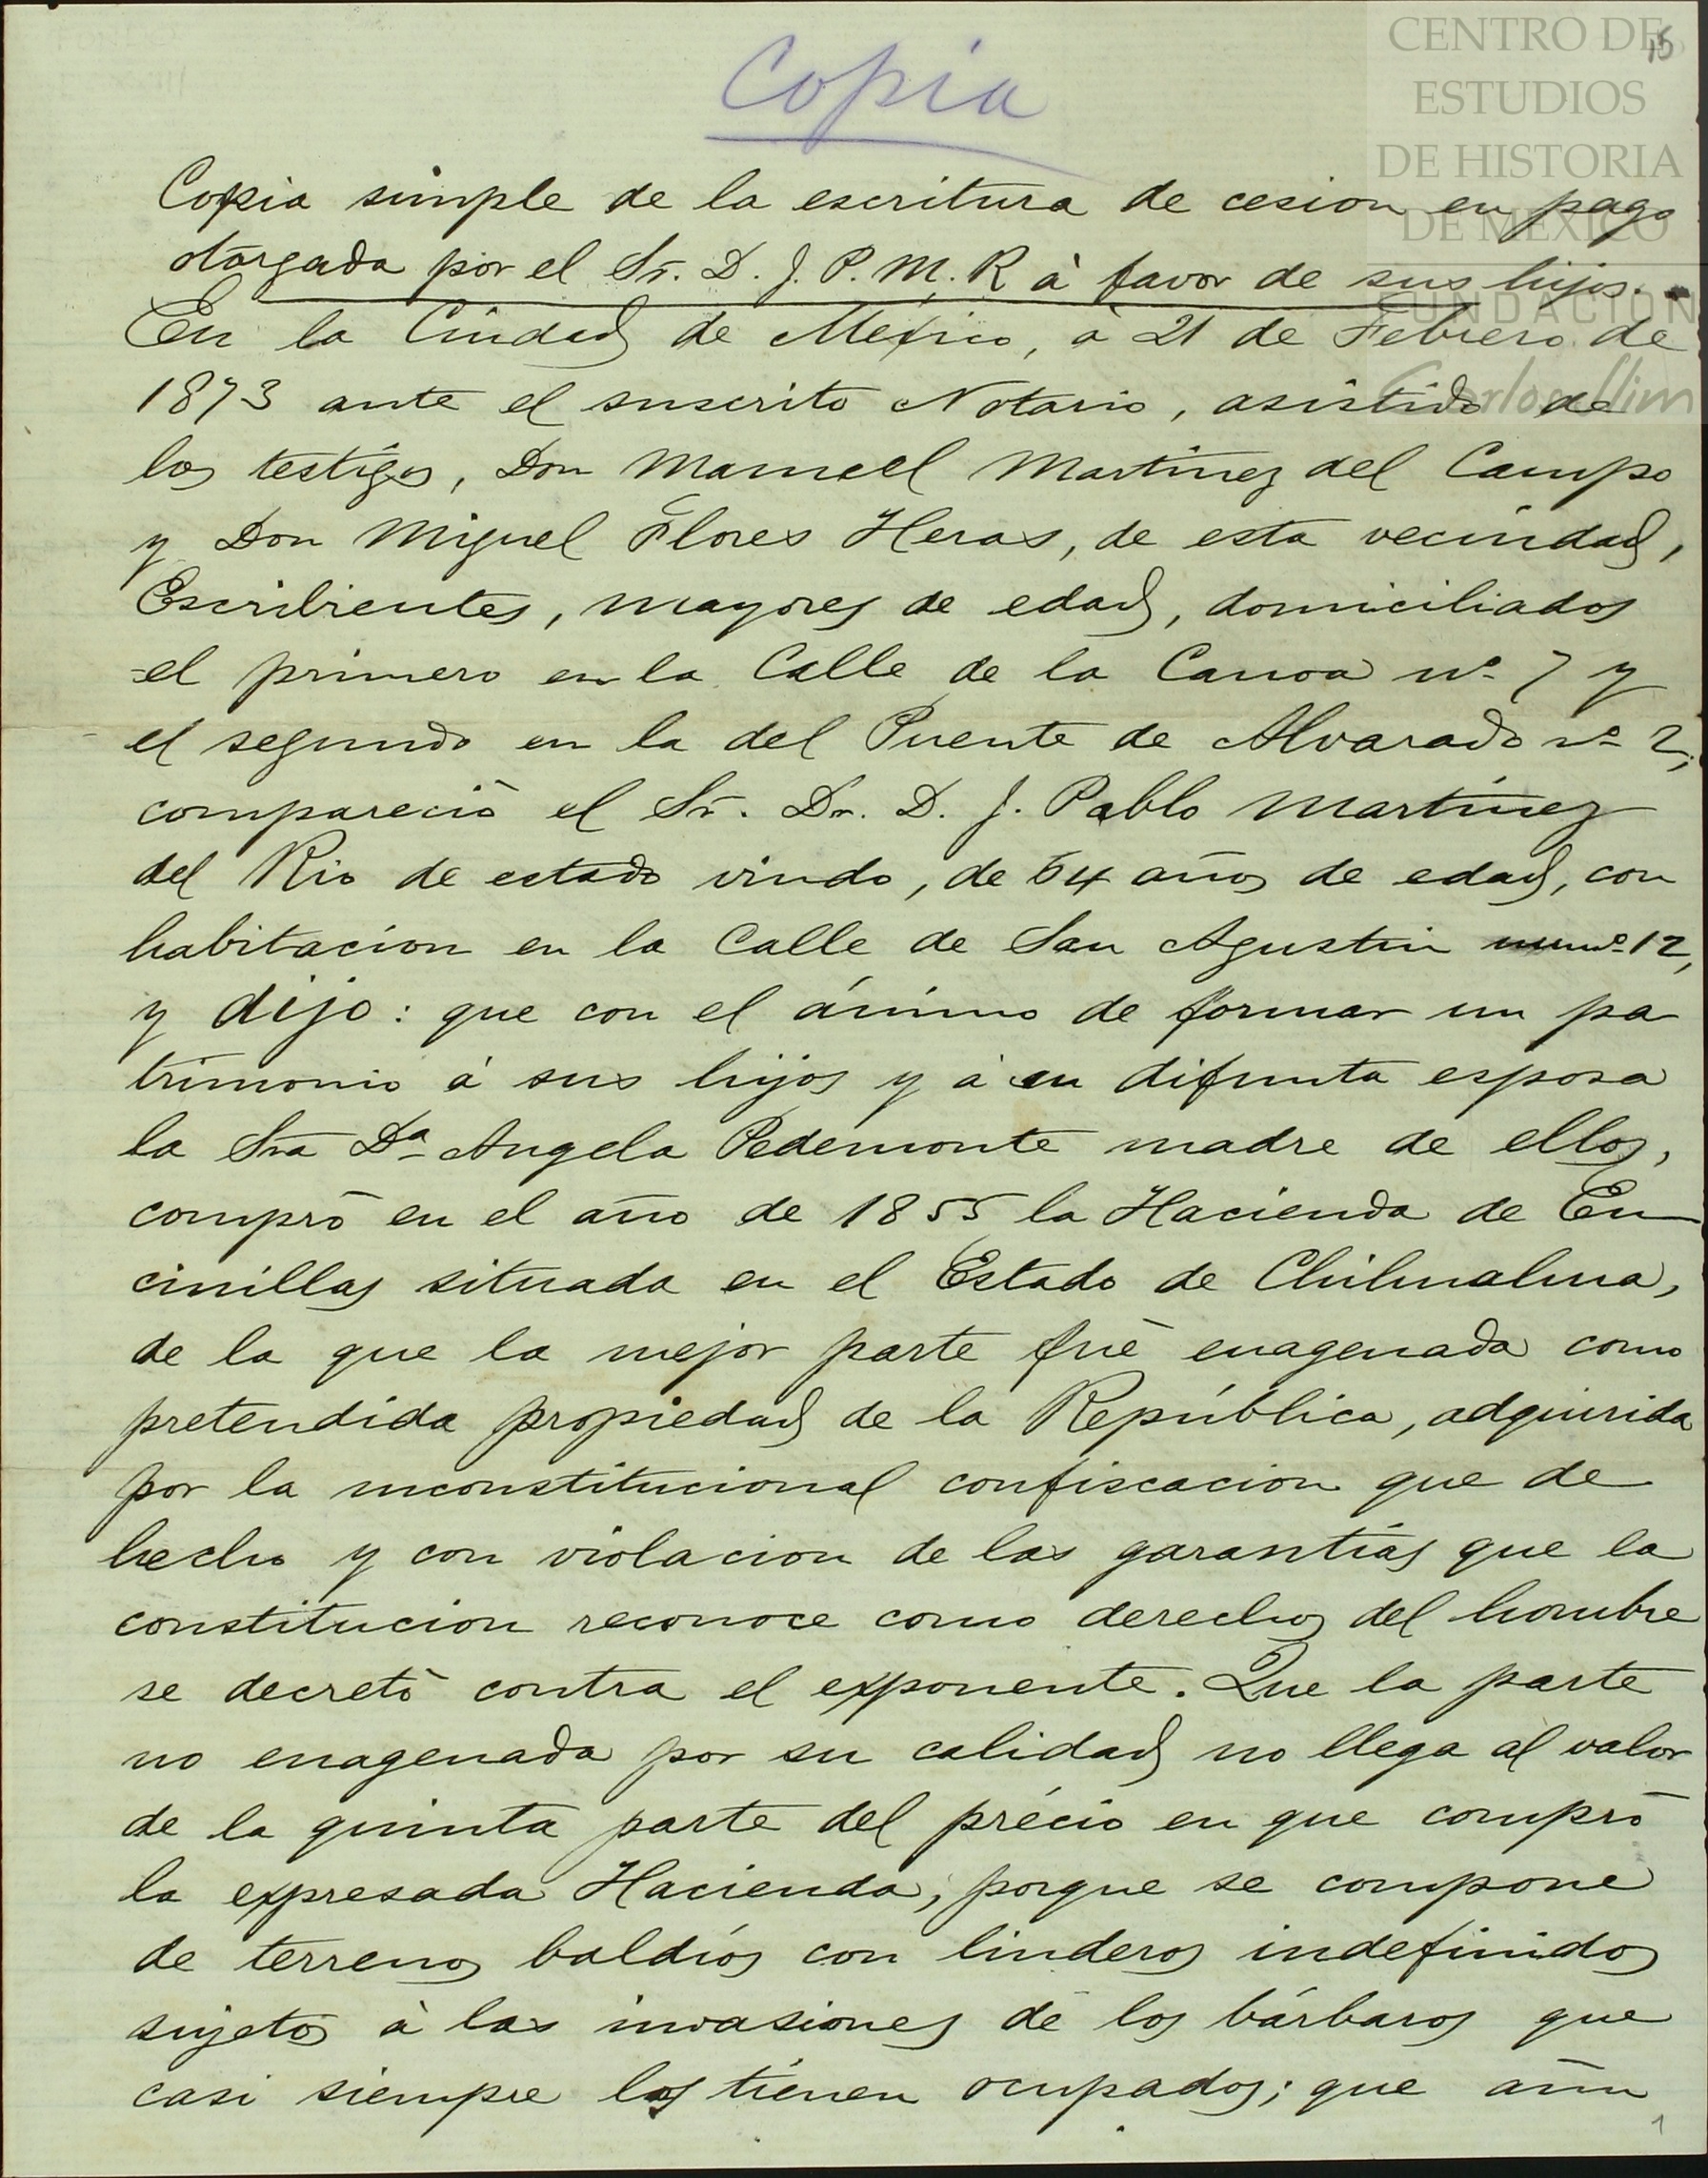 CENTRO DE
ESTUDIOS
DE HISTORIA
DE MÉXICO
FUNDACIÓN
Carlos Slim
15
Copia
Copia simple de la escritura de cesion en pago
otorgada por el Sr. D. J. P. M. R à favor de sus hijos.
En la Ciudad de México, à 21 de Febrero de
1873 ante el suscrito Notario, asistido de
los testigos, Don Manuel Martinez del Campo
y Don Miguel Flores Heras, de esta vecindad,
Escribientes, mayores de edad, domiciliados
el primero en la Calle de la Canoa nº 7 y
el segundo en la del Puente de Alvarado nº 2,
compareciò el Sr. Dr. D. J. Pablo Martinez
del Rio de estado viudo, de 54 años de edad, con
habitacion en la Calle de San Agustin numº 12,
y dijo: que con el ánimo de formar un pa
trimonio à sus hijos y à su difunta esposa
la Sra Dª Angela Pedemonte madre de ellos,
comprò en el año de 1855 la Hacienda de En
cinillas situada en el Estado de Chihuahua,
de la que la mejor parte fuè enagenada como
pretendida propiedad de la República, adquirida
por la inconstitucional confiscacion que de
hecho y con violacion de las garantías que la
constitucion reconoce como derechos del hombre
se decretò contra el exponente. Que la parte
no enagenada por su calidad no llega al valor
de la quinta parte del précio en que comprò
la expresada Hacienda, porque se compone
de terrenos baldíos con linderos indefinidos
sujetos à las invasiones de los bárbaros que
casi siempre los tienen ocupados; que aún
1